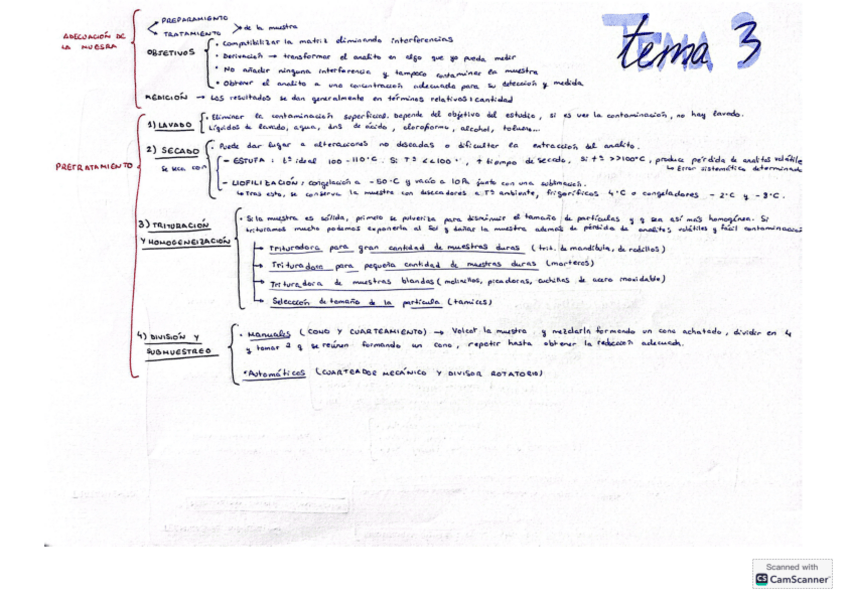 TEMA 3
tema 3
ADECUACIÓN DE
LA MUESRA
PREPARAMIENTO
TRATAMIENTO
de la muestra
OBJETIVOS
• Compatibilizar la matriz eliminando interferencias
• Derivación → transformar el analito en algo que yo pueda medir
• No añadir ninguna interferencia y tampoco contaminar en muestra
• Obtener el analito a una concentración adecuada para su detección y medida
MEDICIÓN → Los resultados se dan generalmente en términos relativos: cantidad
PRETRATAMIENTO
1) LAVADO
• Eliminar la contaminación superficial. Depende del objetivo del estudio, si es ver la contaminación, no hay lavado.
Líquidos de lavado, agua, dns de ácido, cloroformo, alcohol, tolueno...
2) SECADO
se seca con
• Puede dar lugar a alteraciones no deseadas o dificultar la extracción del analito.
- ESTUFA: tª ideal 100-110°C. Si tª <<100°, + tiempo de secado, si tª >>100°C, produce pérdida de analitos volátile
↳ Error sistemático determinado
- LIOFILIZACIÓN: congelación a -50°C y vacío a 10Pa junto con una sublimación.
↳ Tras esto, se conserva la muestra con desecadores a Tª ambiente, frigoríficos 4°C o congeladores -2°C y -8°C.
3) TRITURACIÓN
Y HOMOGENEIZACIÓN
• Si la muestra es sólida, primero se pulveriza para disminuir el tamaño de partículas y q sea así más homogénea. Si
trituramos mucho podemos exponerla al sol y dañar la muestra además de pérdida de analitos volátiles y fácil contaminación
→ Trituradora para gran cantidad de muestras duras (trit. de mandíbula, de rodillos)
→ Trituradora para pequeña cantidad de muestras duras (morteros)
→ Trituradora de muestras blandas (molinillos, picadoras, cuchillas de acero inoxidable)
→ Selección de tamaño de la partícula (tamices)
4) DIVISIÓN Y
SUBMUESTREO
• Manuales (CONO Y CUARTEAMIENTO) → Volcar la muestra y mezclarla formando un cono achatado, dividir en 4
y tomar 2 q se reúnen formando un cono, repetir hasta obtener la reducción adecuada.
• Automáticos (CUARTEADOR MECÁNICO Y DIVISOR ROTATORIO)
Scanned with
CS CamScanner